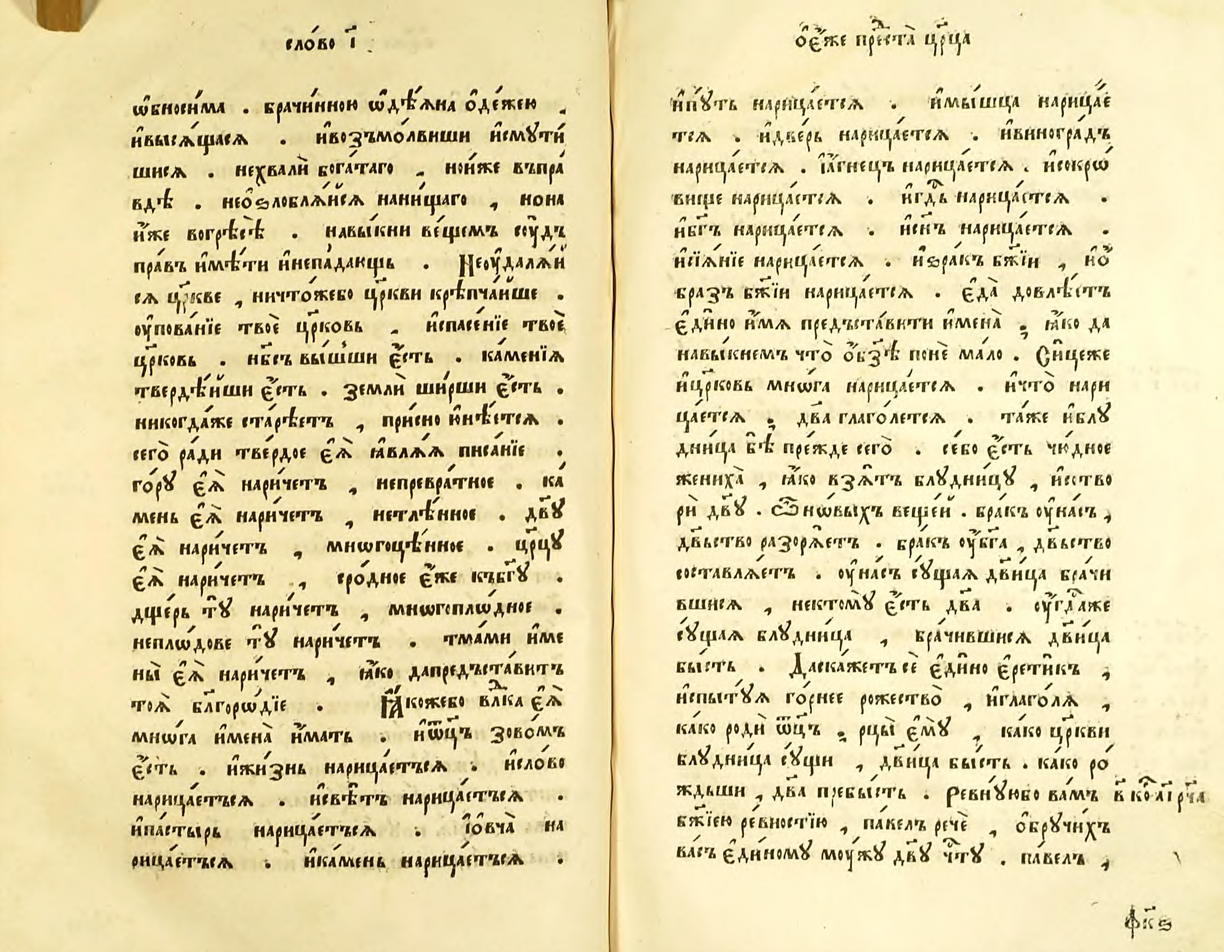 сло́во і҃ .
ѡ҆бноси́ма . брачи́нною ѡ҆дѣ́ѧна ѻ҆де́жею .
и҆высѧ́щаесѧ . и҆возъмо́лвиши и҆смути́
шисѧ . нехвали̏ бога́таго . нои҆́же въпра́
вдѣ . нео҆ѕлоблѧ́йсѧ нани́щаго , нона
и҆́же вогрѣ́сѣ . навы́кни ве́щемъ сꙋ́дъ
пра́въ и҆мѣ́ти и҆непа́дающь . Неоу҆далѧ́й
сѧ цр҃кве , ничто́жебо цр҃кви крѣпча́йше .
оу҆пова́нїе твоѐ цр҃ковь . и҆спасе́нїе твоѐ
цр҃ковь . нб҃съ вы́шъши є҆́сть . ка́менїѧ
твердѣ́йши є҆́сть . земли̏ ши́рши є҆́сть .
никогда́же старѣ́етъ , при́сно ю҆нѣ́етсѧ .
сего̀ ра́ди тве́рдое є҆ѧ̀ ꙗ҆влѧ́ѧ писа́нїе .
го́рꙋ є҆ѧ̀ нари́четъ , непревра́тное . ка́
мень є҆ѧ̀ нари́четъ , нетлѣ́нное . дв҃ꙋ
є҆ѧ̀ нари́четъ , мнѡгоцѣ́нное . цр҃цꙋ
є҆ѧ̀ нари́четъ , сро́дное є҆́же къбг҃ꙋ .
дще́рь тꙋ̀ нари́четъ , мнѡгоплѡ́дное .
неплѡ́дове тꙋ̀ нари́четъ . тма́ми и҆ме
ны̀ є҆ѧ̀ нари́четъ , ꙗ҆́ко дапредъста́витъ
тоѧ̀ бл҃горѡ́дїе . Ꙗ҆́кожебо влⷣка є҆ѧ̀
мнѡ́га и҆мена̀ и҆́мать . и҆ѻ҆ц҃ъ зово́мъ
є҆́сть . и҆жи́знь нарица́етъсѧ . и҆сло́во
нарица́етъсѧ . и҆свѣ́тъ нарица́етъсѧ .
и҆па́стырь нарица́етъсѧ . і҆ѻ҆вча̀ на
рица́етъсѧ . и҆ка́мень нарица́етъсѧ .
ѻ҆є҆́же прⷭ҇та̀ цр҃ца
и҆пꙋ́ть нарица́етсѧ . и҆мы́шца нарица́е
тсѧ . и҆две́рь нарица́етсѧ . и҆виногра́дъ
нарица́етсѧ . і҆а҆́гнецъ нарица́етсѧ . и҆сокро́
вище нарица́етсѧ . и҆гдⷭ҇ь нарица́етсѧ .
и҆бг҃ъ нарица́етсѧ . и҆сн҃ъ нарица́етсѧ .
и҆сїѧ́нїе нарица́етсѧ . и҆ѕра́къ бж҃їи , и҆ѻ҆́
бразъ бж҃їи нарица́етсѧ . є҆да̀ довлѣ́етъ
є҆ди́но и҆́мѧ предъста́вити и҆мена̀ ; ꙗ҆́ко да
навы́кнемъ что̀ ѻ҆бз҃ѣ понѐ ма́ло . Си́цеже
и҆цр҃ковь мнѡ́га нарица́етсѧ . и҆что̀ нари
ца́етсѧ ; дв҃а глаго́летсѧ . та́же и҆блꙋ
дни́ца бѣ̀ пре́жде сего̀ . се́бо є҆́сть чю́дное
жениха̀ , ꙗ҆́ко взѧ́тъ блꙋдни́цꙋ , и҆сотво
рѝ дв҃ꙋ . Ѽ но́выхъ веще́й . бра́къ оу҆на́съ ,
дв҃ьство разорѧ́етъ . бра́къ оу҆бг҃а , дв҃ьство
составлѧ́етъ . оу҆на́съ сꙋ́щаѧ дв҃ица брачи́
вшисѧ , нектомꙋ̀ є҆́сть дв҃а . оу҆гдⷭ҇аже
сꙋ́щаѧ блꙋдни́ца , брачи́вшисѧ дв҃ица
бы́сть . Даска́жетъ сѐ є҆ди́но є҆рети́къ ,
и҆спытꙋ́ѧ го́рнее рожество̀ , и҆глаго́лѧ ,
ка́ко родѝ ѻ҆ц҃ъ ; рцы̀ є҆мꙋ̀ , ка́ко цр҃кви
блꙋдни́ца сꙋ́щи , дв҃ица бы́сть . ка́ко ро́
ждьши , дв҃а пребы́сть . Ревнꙋ́юбо ва́мъ
бж҃їею ре́вностїю , па́велъ речѐ , ѻ҆брꙋчи́хъ
ва́съ є҆ди́номꙋ мꙋ́жꙋ дв҃ꙋ чⷭ҇тꙋ . па́велъ ,
фк҃ѕ